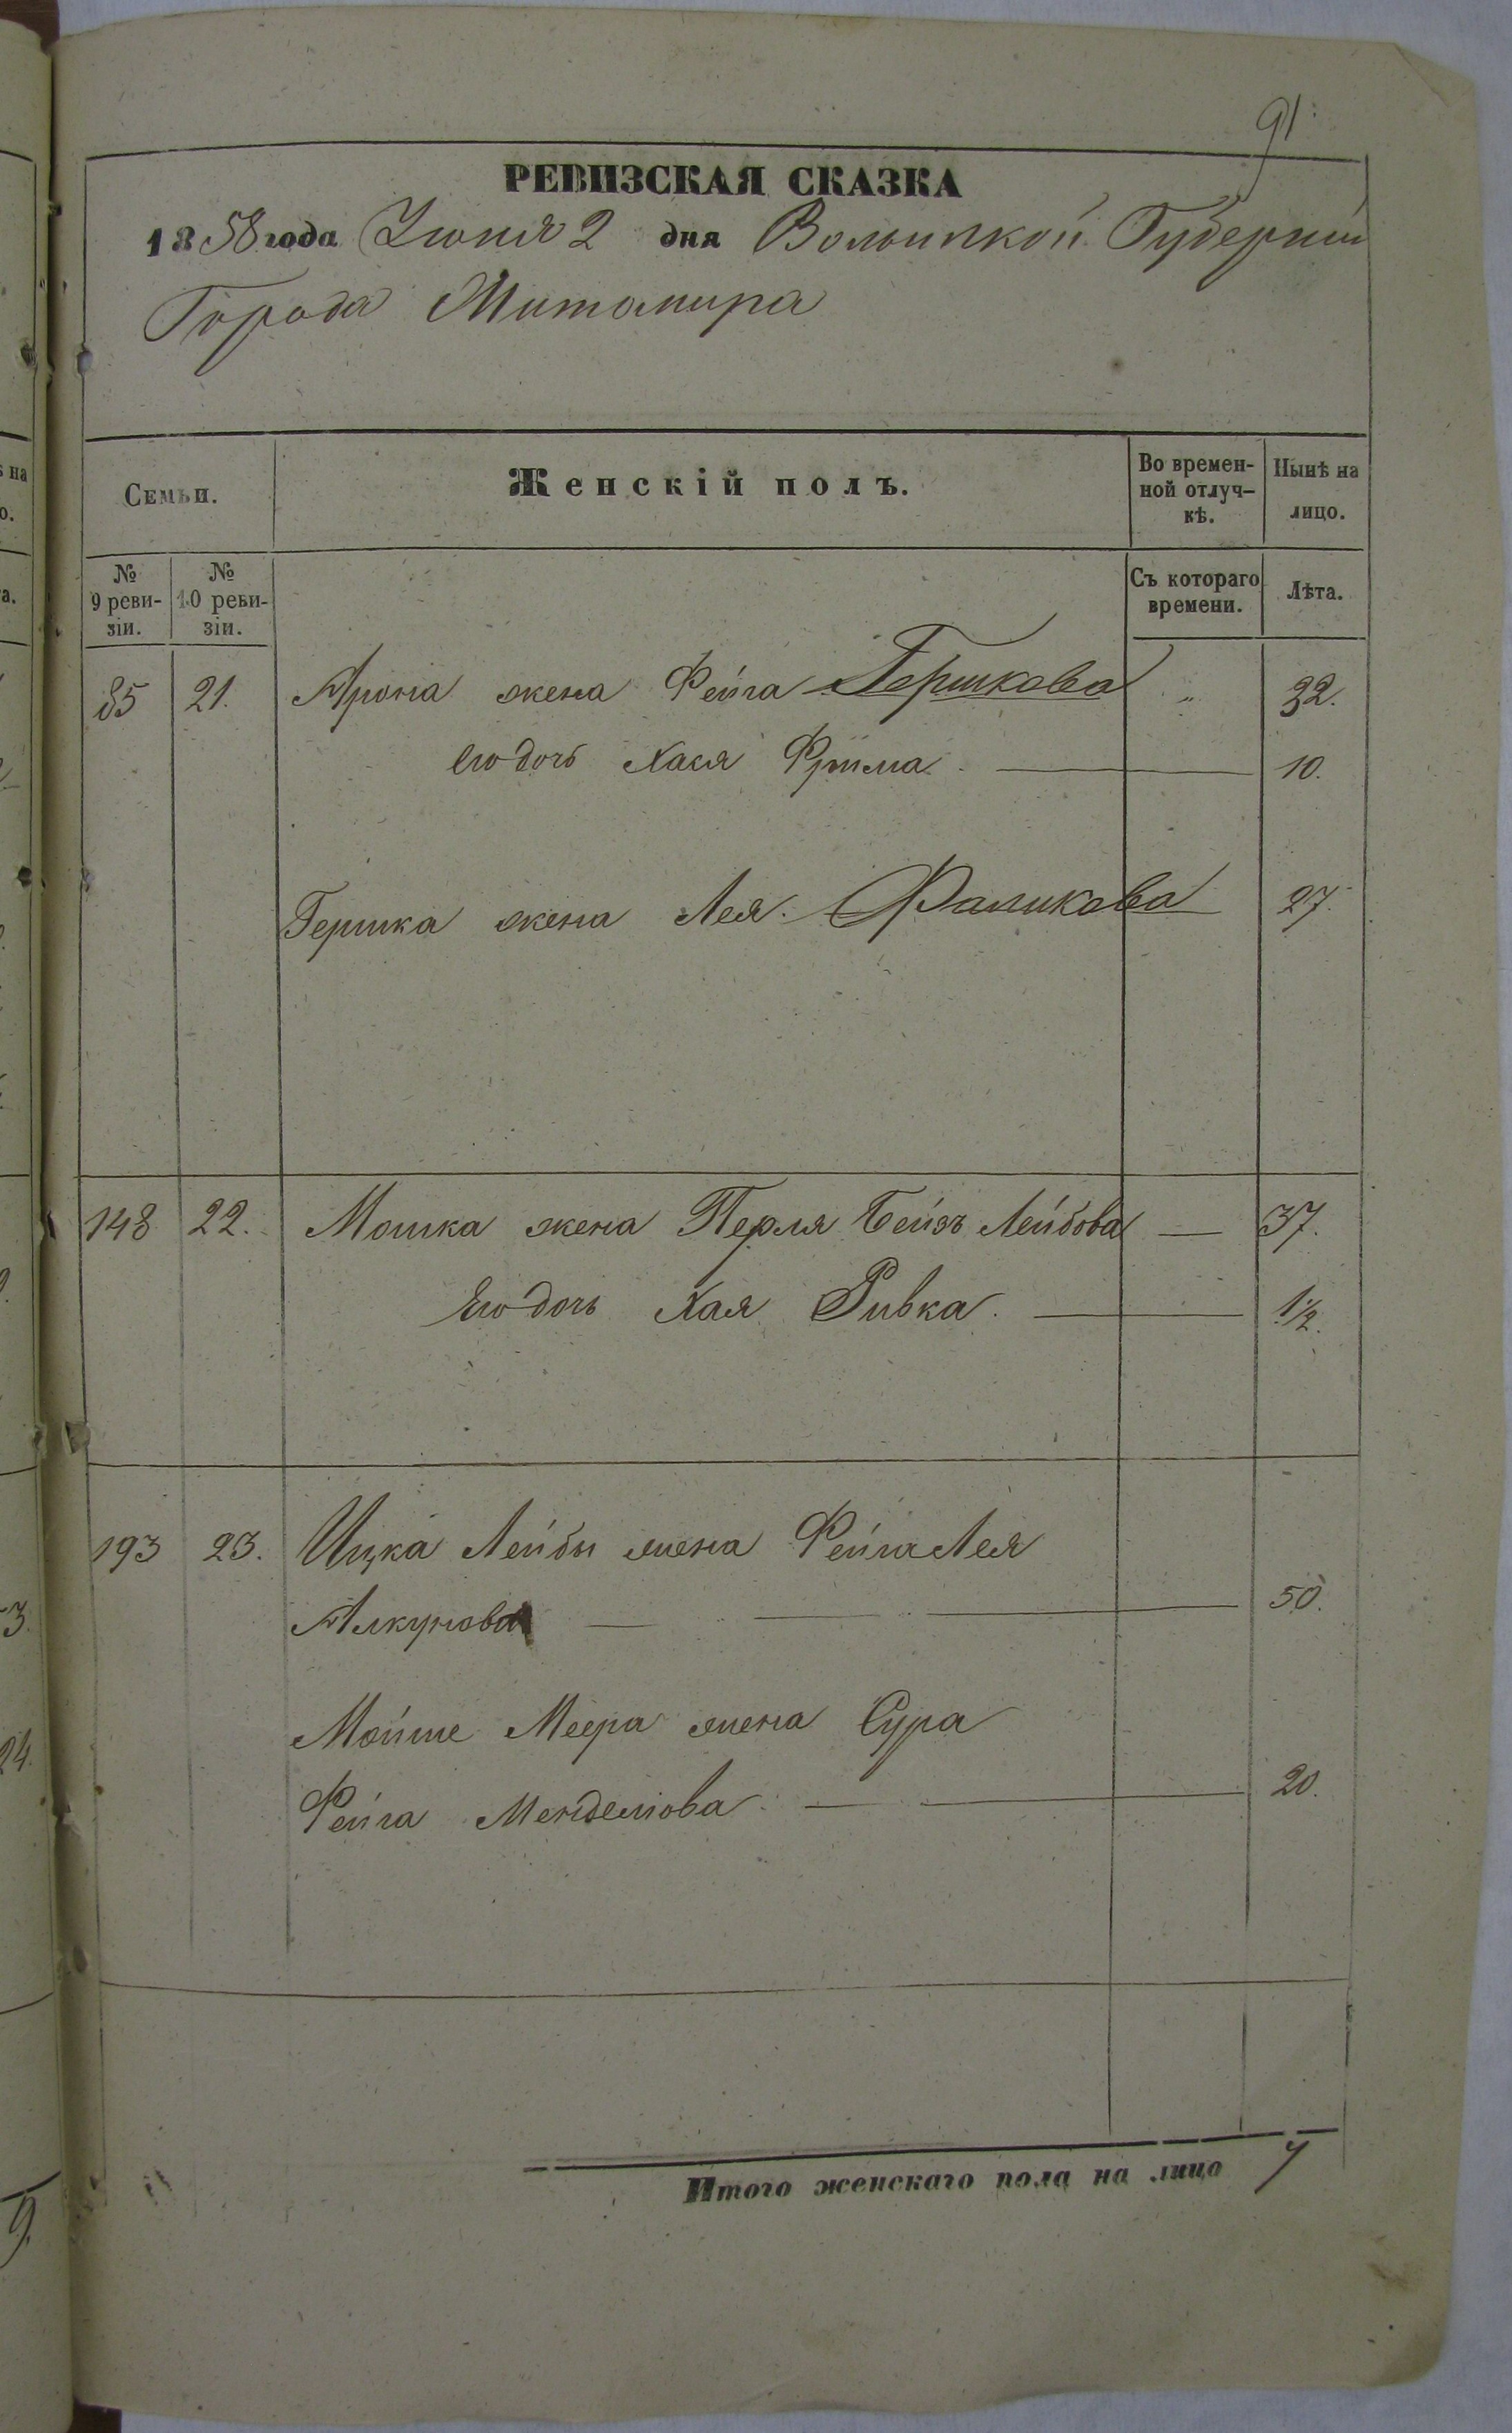 91.
РЕВИЗСКАЯ СКАЗКА
1858 года Іюня 2 дня Волынской Губерніи
Города Житомира
Семьи.
Женскій полъ.
Во времен-
ной отлуч-
кѣ.
Нынѣ на
лицо.
№
9 реви-
зіи.
№
10 реви-
зіи.
Съ котораго
времени.
Лѣта.
85 21. Арона жена Фейга Гершкова " 32.
его дочь Хася Фрима. — 10.
Гершка жена Лея Фаликова 27.
148 22. Мошка жена Перля Бейзъ Лейбова — 37.
Его дочь Хая Ривка. — 1 1/2.
193 23. Ицка Лейбы жена Фейга Лея
Алкунова — — — 50.
Мойше Меера жена Сура
Фейга Менделіова — — 20.
Итого женскаго пола на лицо 7